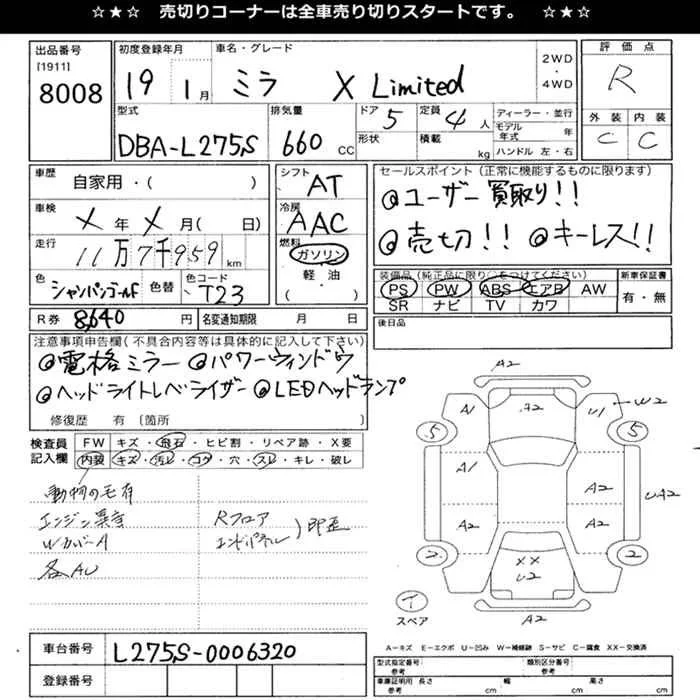 ☆★☆ 売切りコーナーは全車売り切りスタートです。 ☆★☆
出品番号 初度登録年月 車名・グレード 2WD・4WD 評価点
[1911]
8008 19 1月 ミラ X Limited R
型式 排気量 ドア 定員 ディーラー・並行 外装 内装
DBA-L275S 660 CC 5 4人 モデル年式 年 C C
形状 積載 kg ハンドル 左・右
車歴 自家用・( ) シフト AT セールスポイント(正常に機能するものに限ります)
車検 X年X月( 日) 冷房 AAC @ユーザー買取り!!
走行 11万7千959km 燃料 ガソリン @売切!! @キーレス!!
軽・油
( )
色 シャンパンゴールド 色替 色コード T23 装備品(純正品に限り○をつけてください) 新車保証書
PS PW ABS エアB AW 有・無
SR ナビ TV カワ
R券 8,640円 名変通知期限 月 日 後日品
注意事項申告欄(不具合内容等は具体的に記入して下さい)
@電格ミラー @パワーウィンドウ
@ヘッドライトレベライザー @LEDヘッドランプ
修復歴 有〔箇所 〕
検査員記入欄 FW キズ・飛石・ヒビ割・リペア跡・X要
内装 キズ・汚レ・コゲ・穴・スレ・キレ・破レ
動物の毛有
エンジン異音 Rフロア
WカバーA エンドパネル )即歪
各AU
A2
A1 A2 U1 W2
5 5
A1 A2
UA2
A2 A2
2 2
XX
U2
イ
スペア A2
A－キズ E－エクボ U－凹み W－補修跡 S－サビ C－腐食 XX－交換済
車台番号 L275S-0006320
登録番号
型式指定番号 類別区分番号
車庫証明用 長さ cm 幅 cm 高さ cm